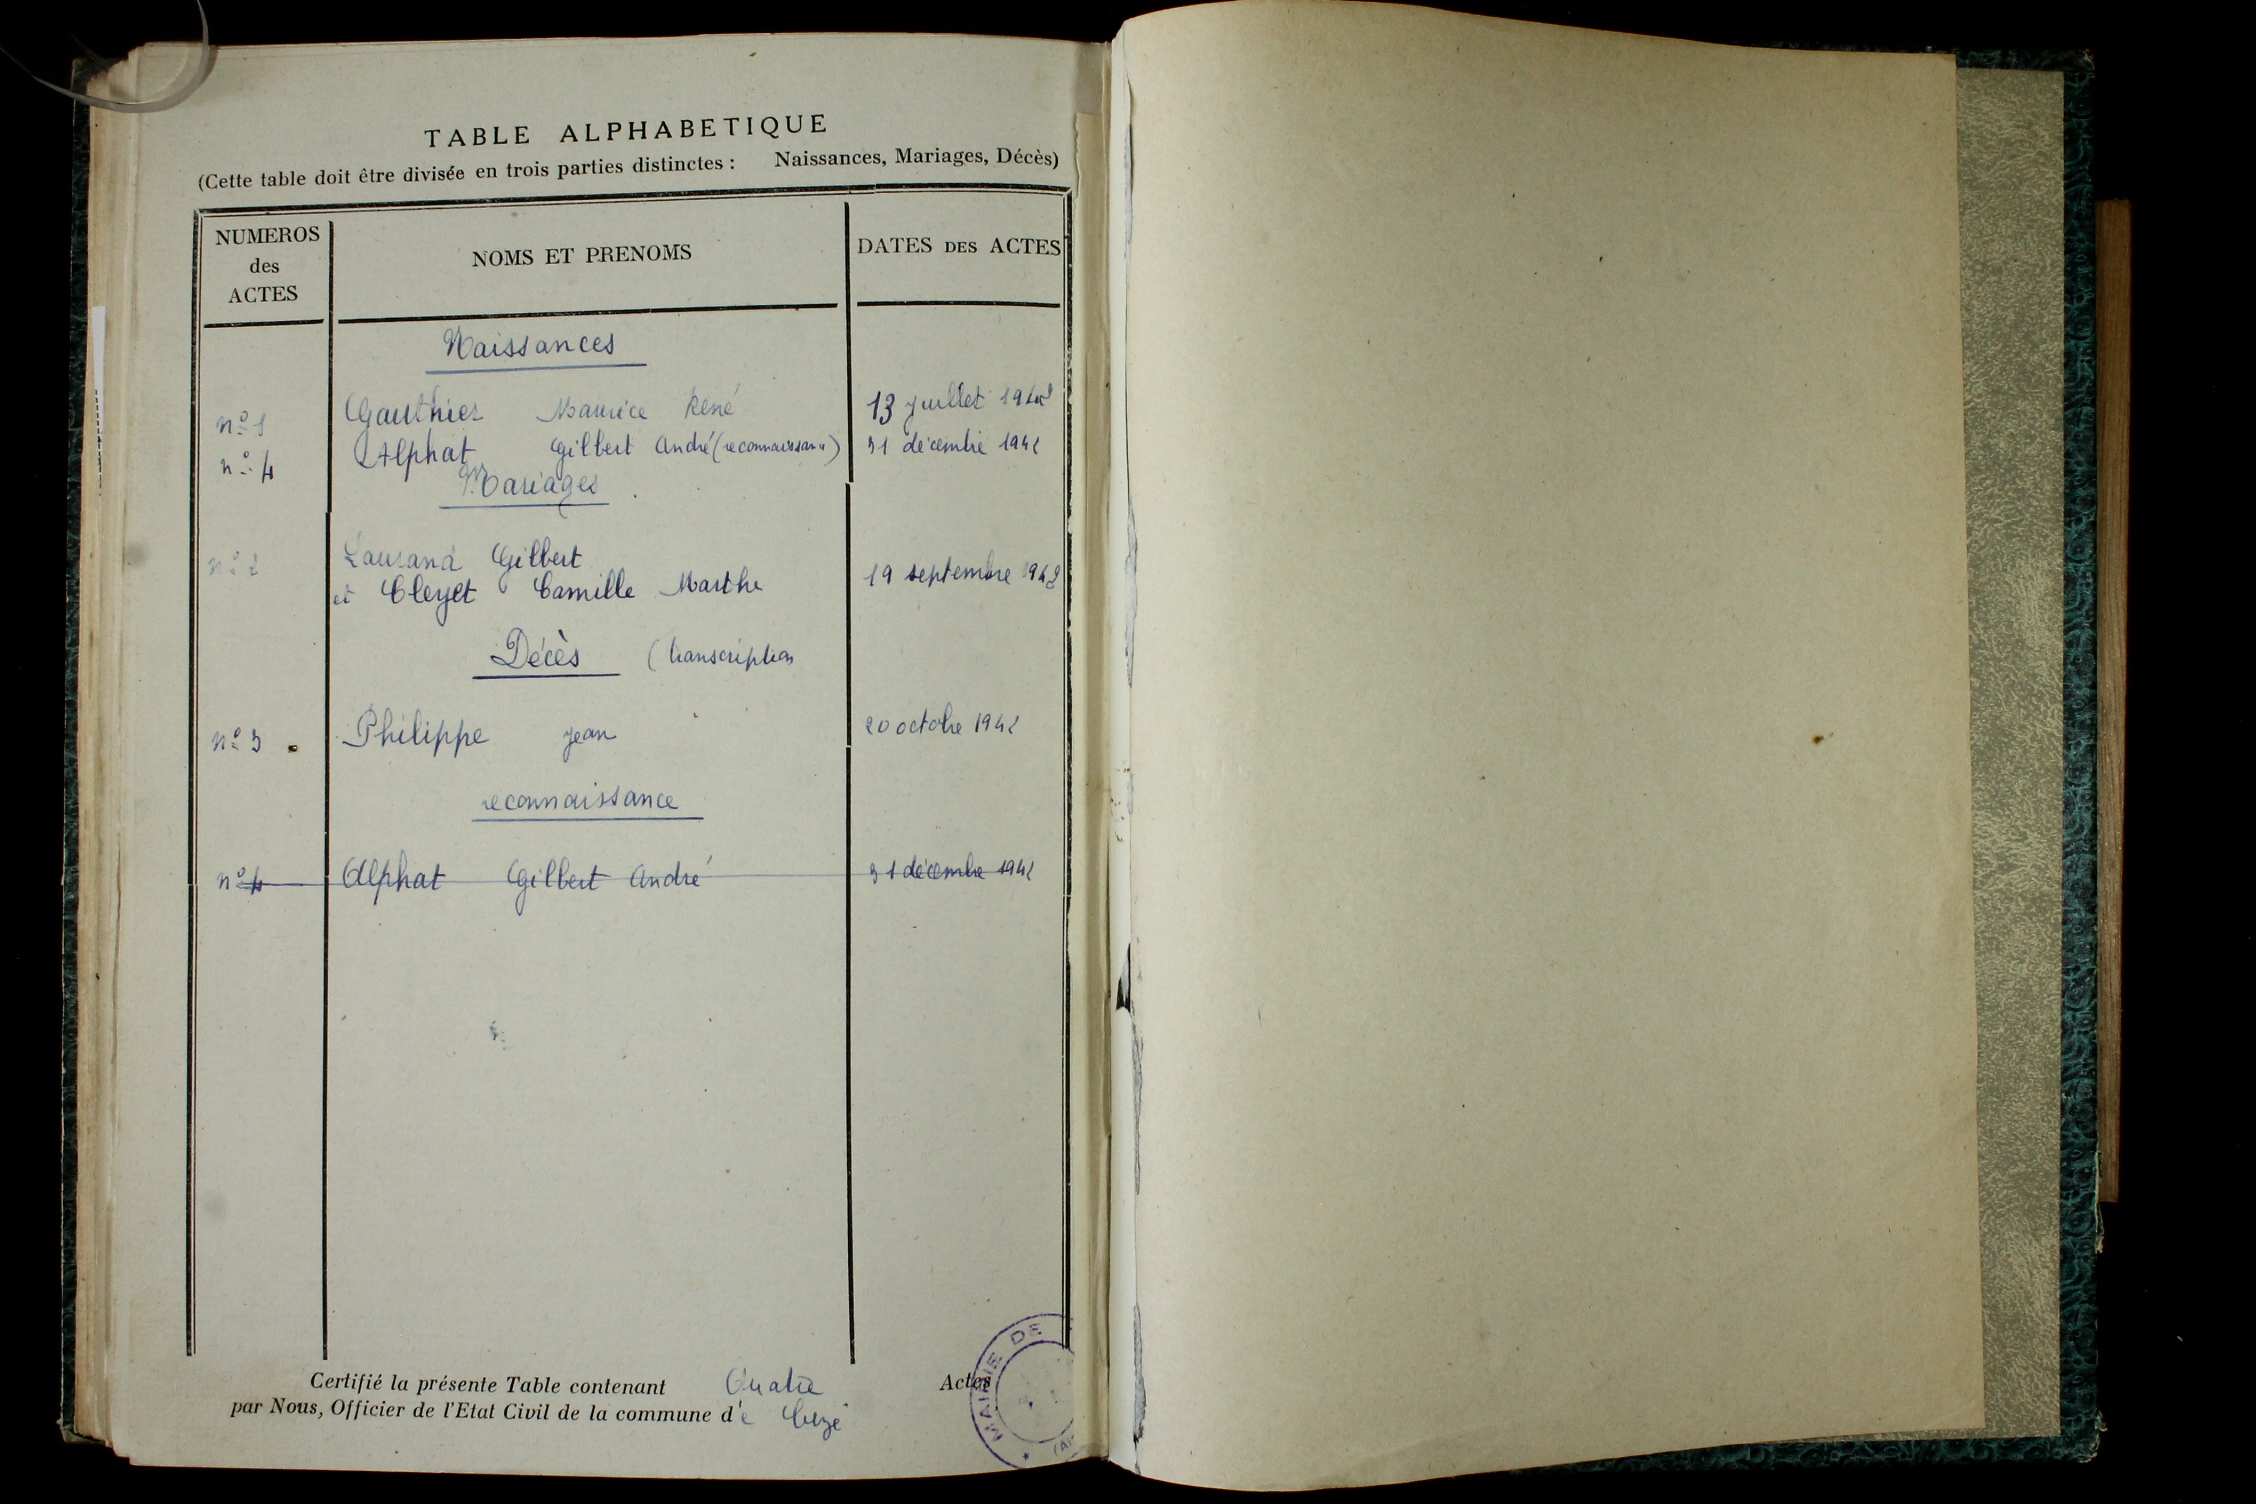 TABLE ALPHABETIQUE
(Cette table doit être divisée en trois parties distinctes : Naissances, Mariages, Décès)
NUMEROS des ACTES
NOMS ET PRENOMS
DATES DES ACTES
Naissances
n° 1 Gauthier Maurice René 13 juillet 1942
n° 4 Alphat Gilbert André (reconnaissance) 31 décembre 1942
Mariages
n° 2 Gilbert
et Cleyet Camille Marthe 19 septembre 1942
Décès (transcription
n° 3 Philippe jean 20 octobre 1942
reconnaissance
n° 4 Alphat Gilbert André 31 décembre 1942
Certifié la présente Table contenant Quatre Actes
par Nous, Officier de l'Etat Civil de la commune de
MAIRIE DE